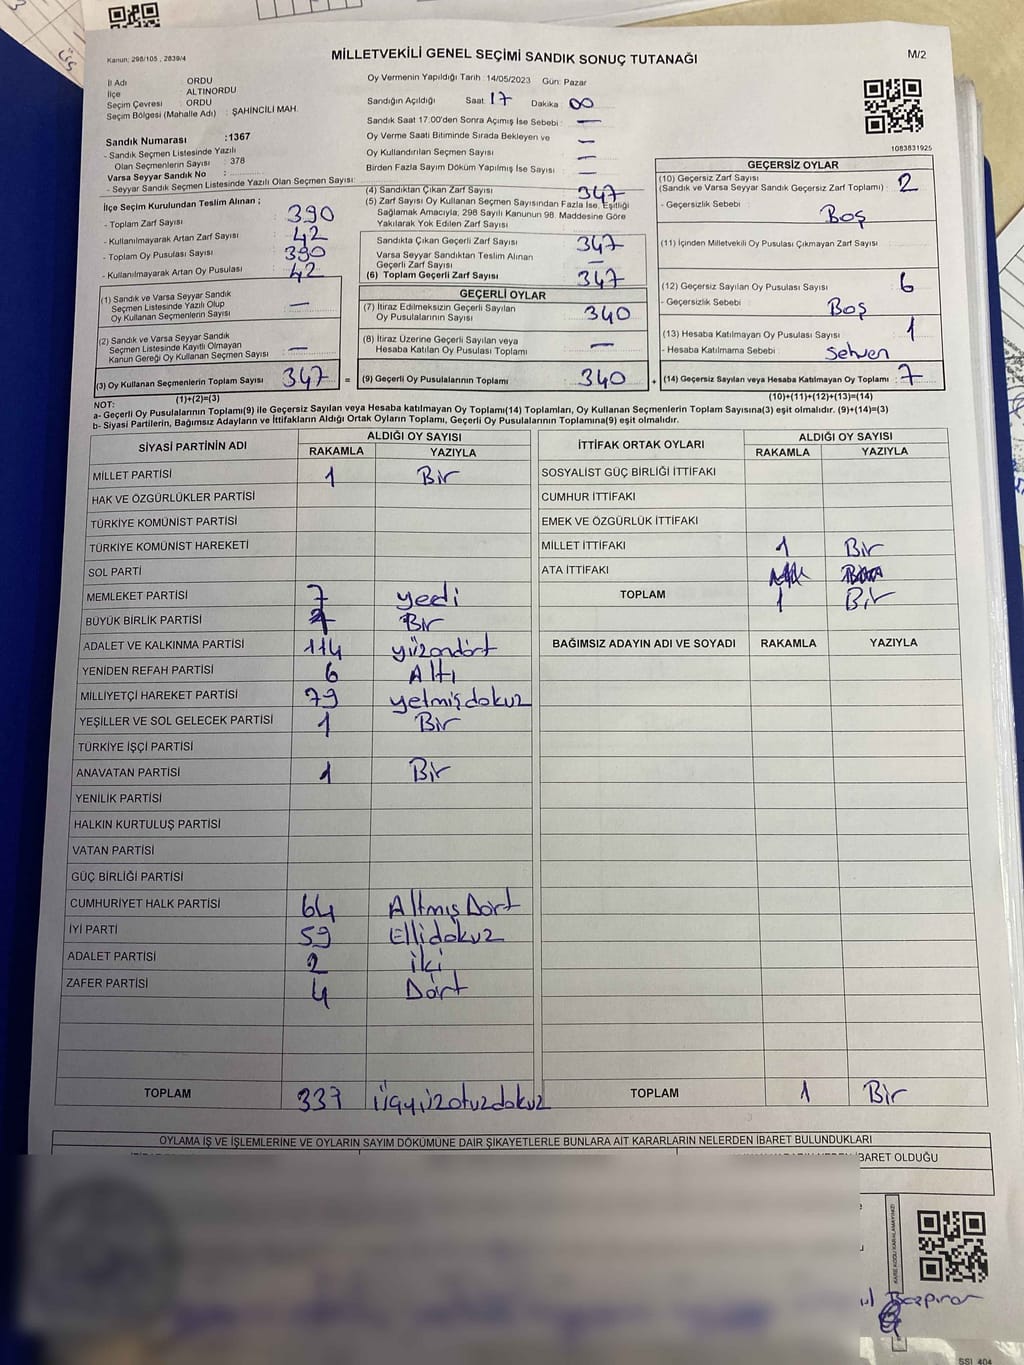 Kanun: 298/105 , 2839/4
MİLLETVEKİLİ GENEL SEÇİMİ SANDIK SONUÇ TUTANAĞI
M/2
İl Adı ORDU
İlçe ALTINORDU
Seçim Çevresi : ORDU
Seçim Bölgesi (Mahalle Adı) : ŞAHİNCİLİ MAH.
Sandık Numarası :1367
- Sandık Seçmen Listesinde Yazılı
Olan Seçmenlerin Sayısı : 378
Varsa Seyyar Sandık No :
- Seyyar Sandık Seçmen Listesinde Yazılı Olan Seçmen Sayısı:
Oy Vermenin Yapıldığı Tarih : 14/05/2023 Gün: Pazar
Sandığın Açıldığı Saat 17 Dakika 00
Sandık Saat 17:00'den Sonra Açımış İse Sebebi : —
Oy Verme Saati Bitiminde Sırada Bekleyen ve —
Oy Kullandırılan Seçmen Sayısı : —
Birden Fazla Sayım Döküm Yapılmış İse Sayısı : —
1083831925
İlçe Seçim Kurulundan Teslim Alınan ;
- Toplam Zarf Sayısı : 390
- Kullanılmayarak Artan Zarf Sayısı : 42
- Toplam Oy Pusulası Sayısı : 390
- Kullanılmayarak Artan Oy Pusulası : 42
(1) Sandık ve Varsa Seyyar Sandık
Seçmen Listesinde Yazılı Olup
Oy Kullanan Seçmenlerin Sayısı : —
(2) Sandık ve Varsa Seyyar Sandık
Seçmen Listesinde Kayıtlı Olmayan
Kanun Gereği Oy Kullanan Seçmen Sayısı : —
(3) Oy Kullanan Seçmenlerin Toplam Sayısı : 347 =
(1)+(2)=(3)
(4) Sandıktan Çıkan Zarf Sayısı : 347
(5) Zarf Sayısı Oy Kullanan Seçmen Sayısından Fazla İse, Eşitliği
Sağlamak Amacıyla; 298 Sayılı Kanunun 98. Maddesine Göre
Yakılarak Yok Edilen Zarf Sayısı :
Sandıkta Çıkan Geçerli Zarf Sayısı : 347
Varsa Seyyar Sandıktan Teslim Alınan
Geçerli Zarf Sayısı : —
(6) Toplam Geçerli Zarf Sayısı : 347
GEÇERLİ OYLAR
(7) İtiraz Edilmeksizin Geçerli Sayılan
Oy Pusulalarının Sayısı : 340
(8) İtiraz Üzerine Geçerli Sayılan veya
Hesaba Katılan Oy Pusulası Toplamı : —
(9) Geçerli Oy Pusulalarının Toplamı : 340 +
GEÇERSİZ OYLAR
(10) Geçersiz Zarf Sayısı
(Sandık ve Varsa Seyyar Sandık Geçersiz Zarf Toplamı) : 2
- Geçersizlik Sebebi : Boş
(11) İçinden Milletvekili Oy Pusulası Çıkmayan Zarf Sayısı :
(12) Geçersiz Sayılan Oy Pusulası Sayısı : 6
- Geçersizlik Sebebi : Boş
(13) Hesaba Katılmayan Oy Pusulası Sayısı : 1
- Hesaba Katılmama Sebebi : Sehven
(14) Geçersiz Sayılan veya Hesaba Katılmayan Oy Toplamı : 7
(10)+(11)+(12)+(13)=(14)
NOT:
a- Geçerli Oy Pusulalarının Toplamı(9) ile Geçersiz Sayılan veya Hesaba katılmayan Oy Toplamı(14) Toplamları, Oy Kullanan Seçmenlerin Toplam Sayısına(3) eşit olmalıdır. (9)+(14)=(3)
b- Siyasi Partilerin, Bağımsız Adayların ve İttifakların Aldığı Ortak Oyların Toplamı, Geçerli Oy Pusulalarının Toplamına(9) eşit olmalıdır.
SİYASİ PARTİNİN ADI ALDIĞI OY SAYISI
RAKAMLA YAZIYLA
MİLLET PARTİSİ 1 Bir
HAK VE ÖZGÜRLÜKLER PARTİSİ
TÜRKİYE KOMÜNİST PARTİSİ
TÜRKİYE KOMÜNİST HAREKETİ
SOL PARTİ
MEMLEKET PARTİSİ 7 yedi
BÜYÜK BİRLİK PARTİSİ 1 Bir
ADALET VE KALKINMA PARTİSİ 114 yüzondört
YENİDEN REFAH PARTİSİ 6 Altı
MİLLİYETÇİ HAREKET PARTİSİ 79 yetmişdokuz
YEŞİLLER VE SOL GELECEK PARTİSİ 1 Bir
TÜRKİYE İŞÇİ PARTİSİ
ANAVATAN PARTİSİ 1 Bir
YENİLİK PARTİSİ
HALKIN KURTULUŞ PARTİSİ
VATAN PARTİSİ
GÜÇ BİRLİĞİ PARTİSİ
CUMHURİYET HALK PARTİSİ 64 Altmış Dört
İYİ PARTİ 59 Ellidokuz
ADALET PARTİSİ 2 iki
ZAFER PARTİSİ 4 Dört
TOPLAM 339 üçyüzotuzdokuz
İTTİFAK ORTAK OYLARI ALDIĞI OY SAYISI
RAKAMLA YAZIYLA
SOSYALİST GÜÇ BİRLİĞİ İTTİFAKI
CUMHUR İTTİFAKI
EMEK VE ÖZGÜRLÜK İTTİFAKI
MİLLET İTTİFAKI 1 Bir
ATA İTTİFAKI
TOPLAM 1 Bir
BAĞIMSIZ ADAYIN ADI VE SOYADI RAKAMLA YAZIYLA
TOPLAM 1 Bir
OYLAMA İŞ VE İŞLEMLERİNE VE OYLARIN SAYIM DÖKÜMÜNE DAİR ŞİKAYETLERLE BUNLARA AİT KARARLARIN NELERDEN İBARET BULUNDUKLARI
İBARET OLDUĞU
KARE KODU KARALAMAYINIZ!
SSİ 404